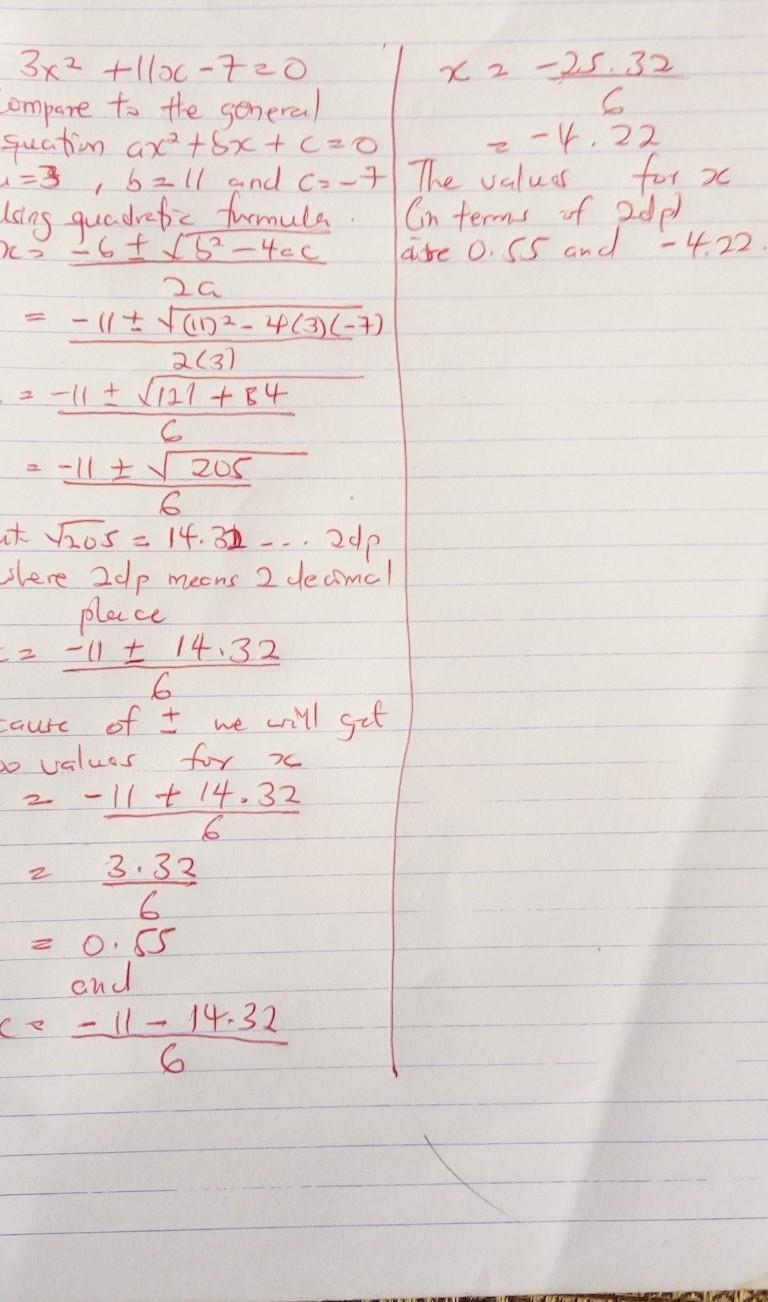 3x² + 11x - 7 = 0
ompare to the general
quation ax² + bx + c = 0
a = 3 , b = 11 and c = -7
Using quadratic formula .
x = -b ± √b² - 4ac
2a
= -11 ± √(11)² - 4(3)(-7)
2(3)
= -11 ± √121 + 84
6
= -11 ± √205
6
ut √205 = 14.32 --- 2dp
where 2dp means 2 decimal
place
x = -11 ± 14.32
6
cause of ± we will get
o values for x
= -11 + 14.32
6
= 3.32
6
= 0.55
and
x = -11 - 14.32
6
x = -25.32
6
= -4.22
The values for x
(in terms of 2dp)
are 0.55 and -4.22.